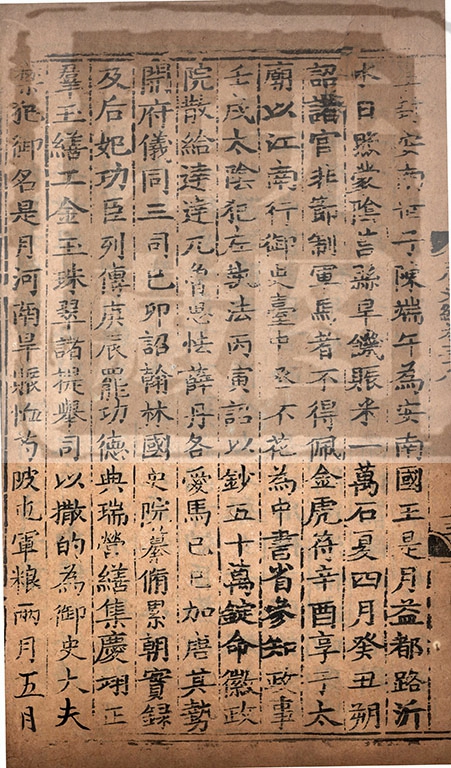 封安南世子陳端午為安南國王是月益都路沂
水日照蒙陰莒縣旱饑賑米一萬石夏四月癸丑朔
詔諸官非節制軍馬者不得佩金虎符辛酉享于太
廟以江南行御史臺中丞不花為中書省參知政事
壬戌太陰犯左執法丙寅詔以鈔五十萬錠命徽政
院散給達達兀魯思怯薛丹各愛馬己巳加唐其勢
開府儀同三司己卯詔翰林國史院纂脩累朝實録
及后妃功臣列傳庚辰罷功德典瑞營繕集慶翊正
羣玉繕工金玉珠翠諸提舉司以撒的為御史大夫
禁犯御名是月河南旱賑恤芍陂屯軍粮兩月五月